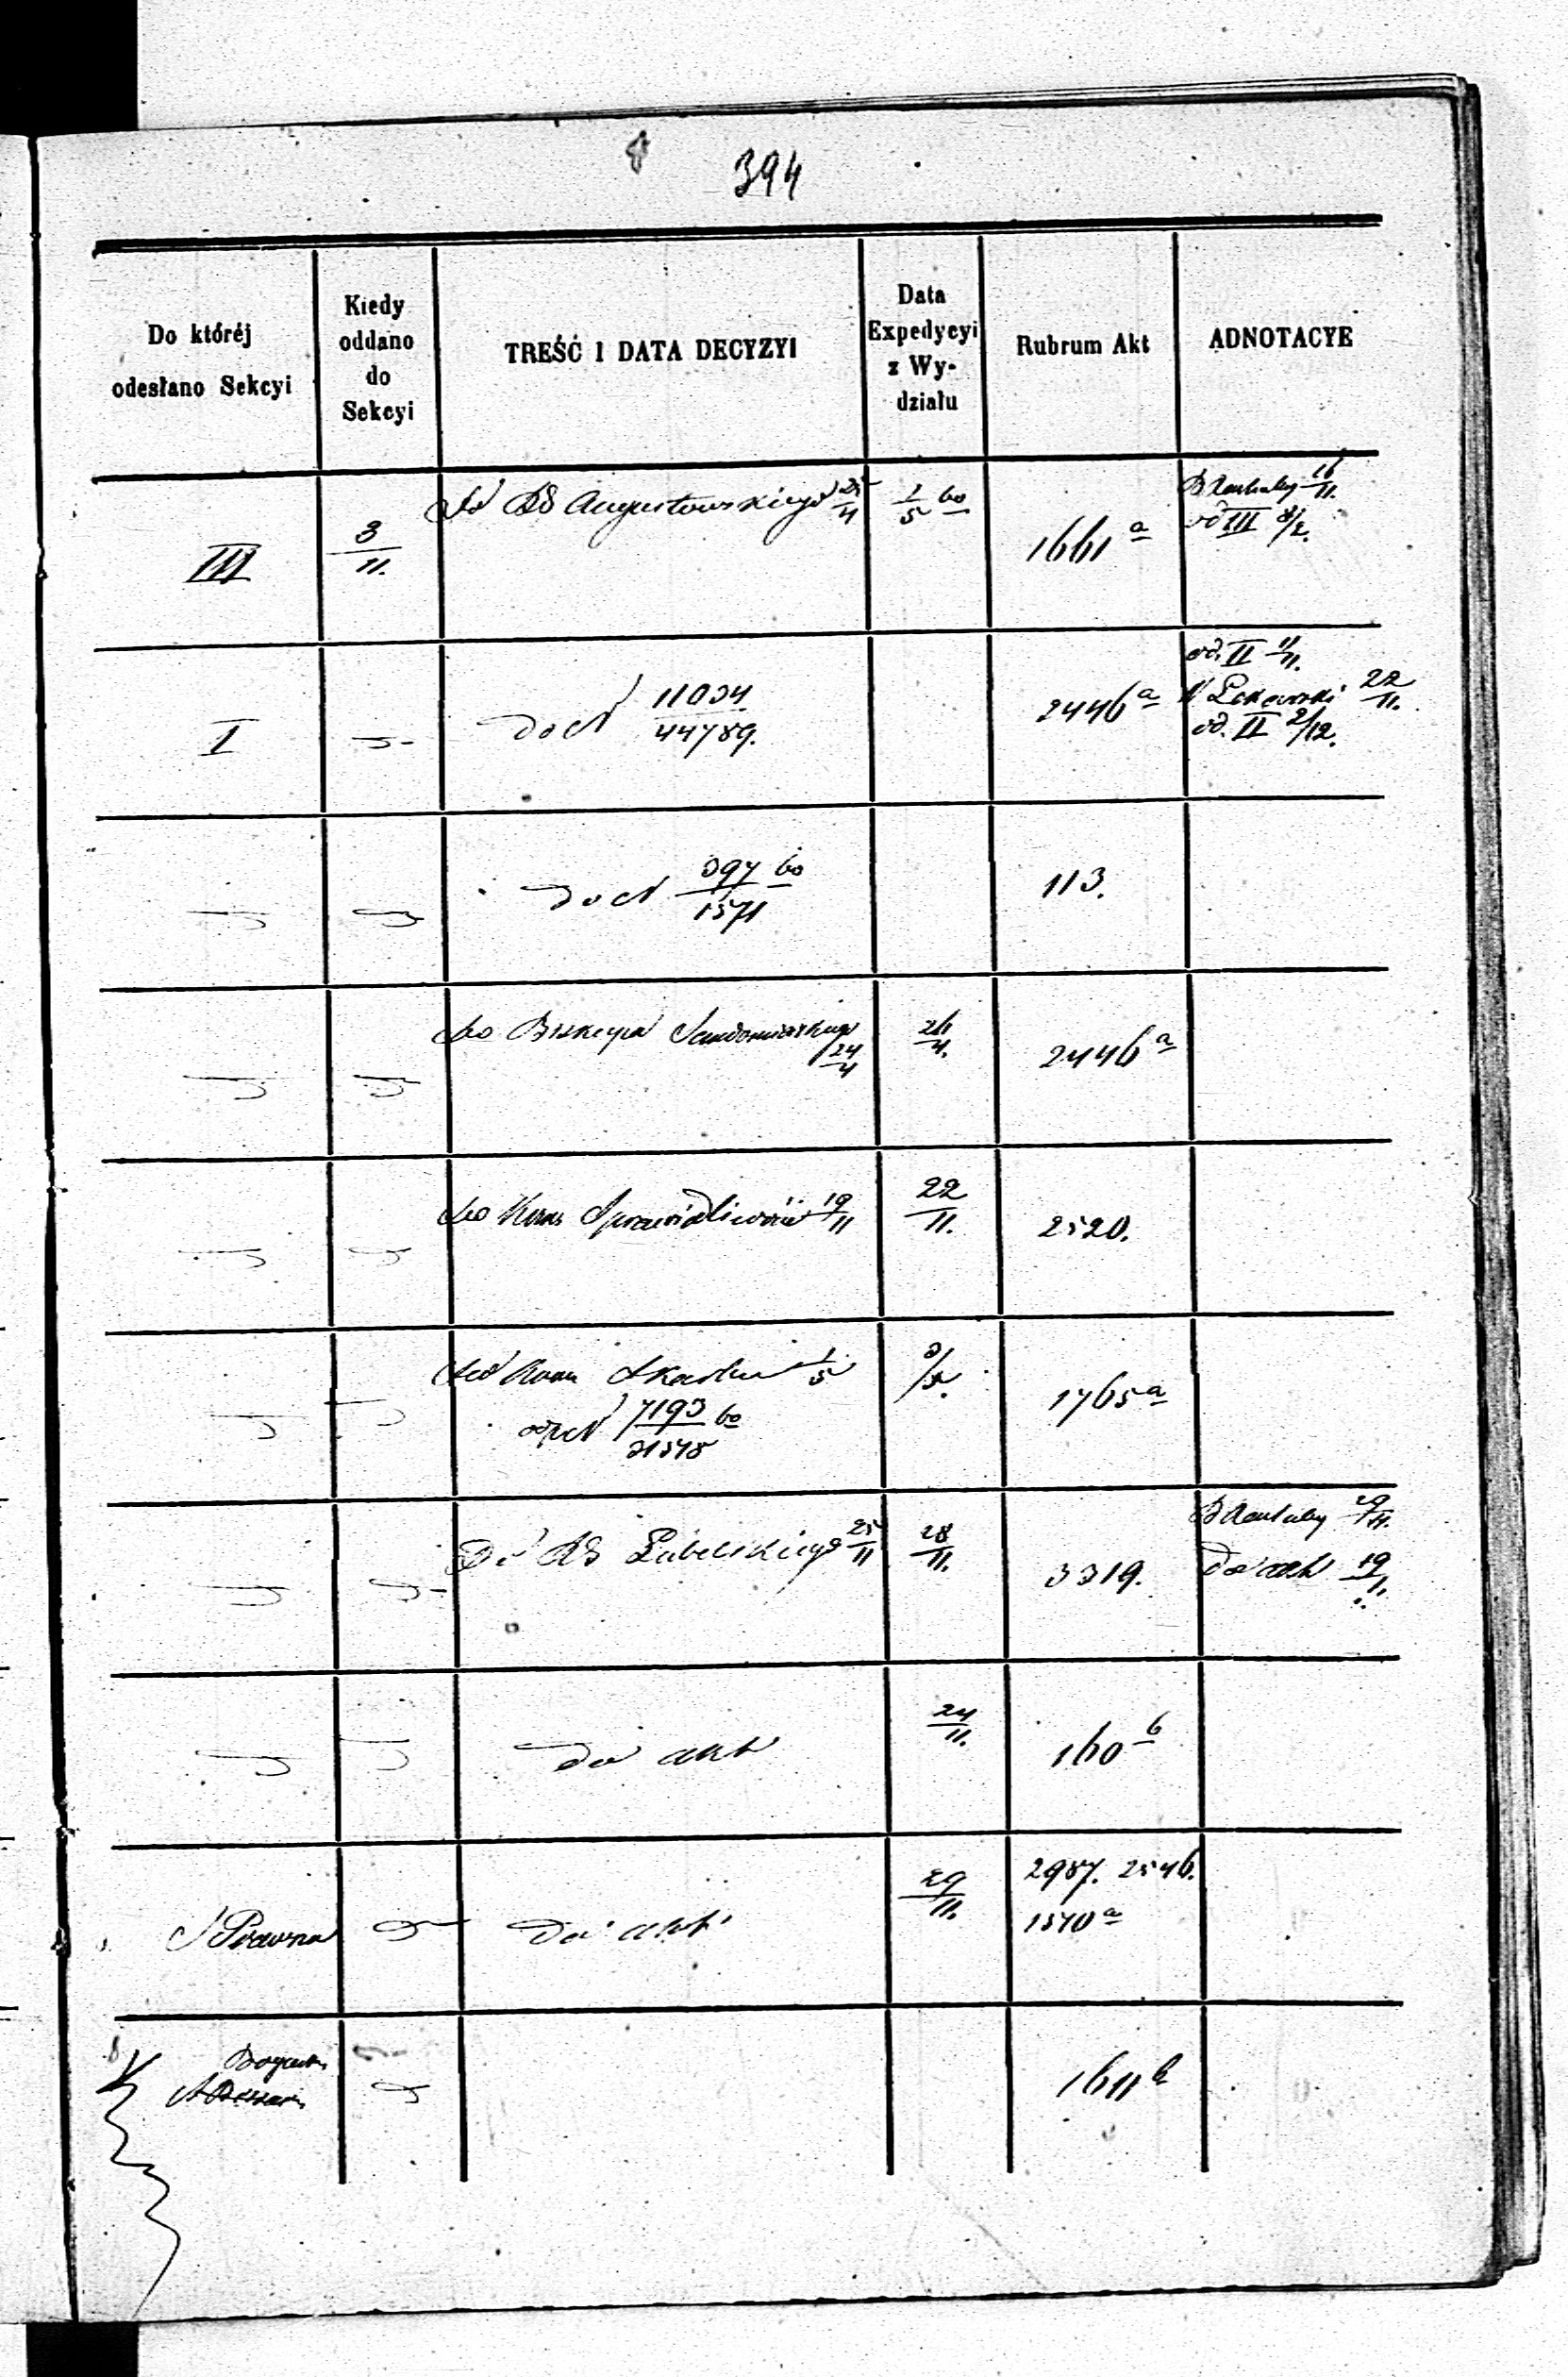 394
Do któréj
odesłano Sekcyi
Kiedy
oddano
do
Sekcyi
TREŚĆ I DATA DECYZYI
Data
Expedycyi
z Wy-
działu
Rubrum Akt
ADNOTACYE
III
3/11.
Do RG Augustowskiego 25/4
1/5 60
1661 a
16/11.
od III 8/2.
I
do N 11034/44789.
2446 a
od. II 11/11.
22/11.
od. II 2/12.
do N 397/1571 60
113.
Do Biskupa Sandomierskiego
24/4
26/4.
2446 a
Do Kom Sprawiedliwości 19/11
22/11.
2520.
Do Kom Skarbu 1/5
3/5.
1765 a
odp N 7193/31548 60
Do RG Lubelskiego 25/11
28/11.
3319.
29/11.
do akt 19/1.
do akt
24/11.
160 b
S Prawna
do akt
29/11.
2987. 2546.
1570 a
1611 b